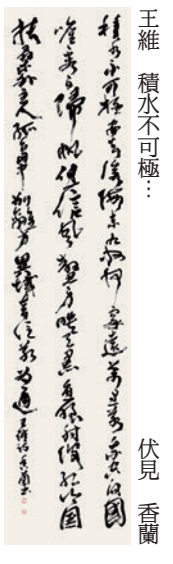 王維　積水不可極…
伏見　香蘭
積水不可極安知滄海東九州何處遠萬里若乘空向國
唯看日歸帆但信風鰲身映天黑魚眼射波紅鄉國
扶桑外主人孤島中別離方異域音信若為通　王維詩　香蘭書